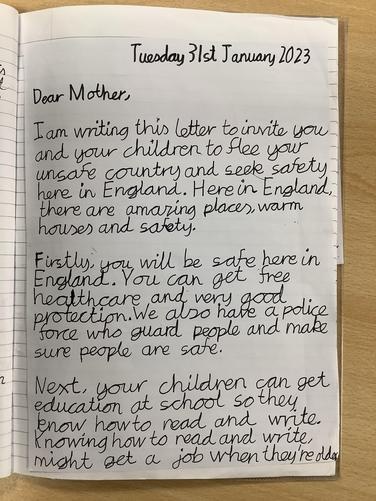 Tuesday 31st January 2023
Dear Mother,
I am writing this letter to invite you
and your children to flee your
unsafe country and seek safety
here in England. Here in England,
there are amazing places, warm
houses and safety.
Firstly, you will be safe here in
England. You can get free
healthcare and very good
protection. We also have a police
force who guard people and make
sure people are safe.
Next, your children can get
education at school so they
know how to read and write.
Knowing how to read and write,
might get a job when they're older